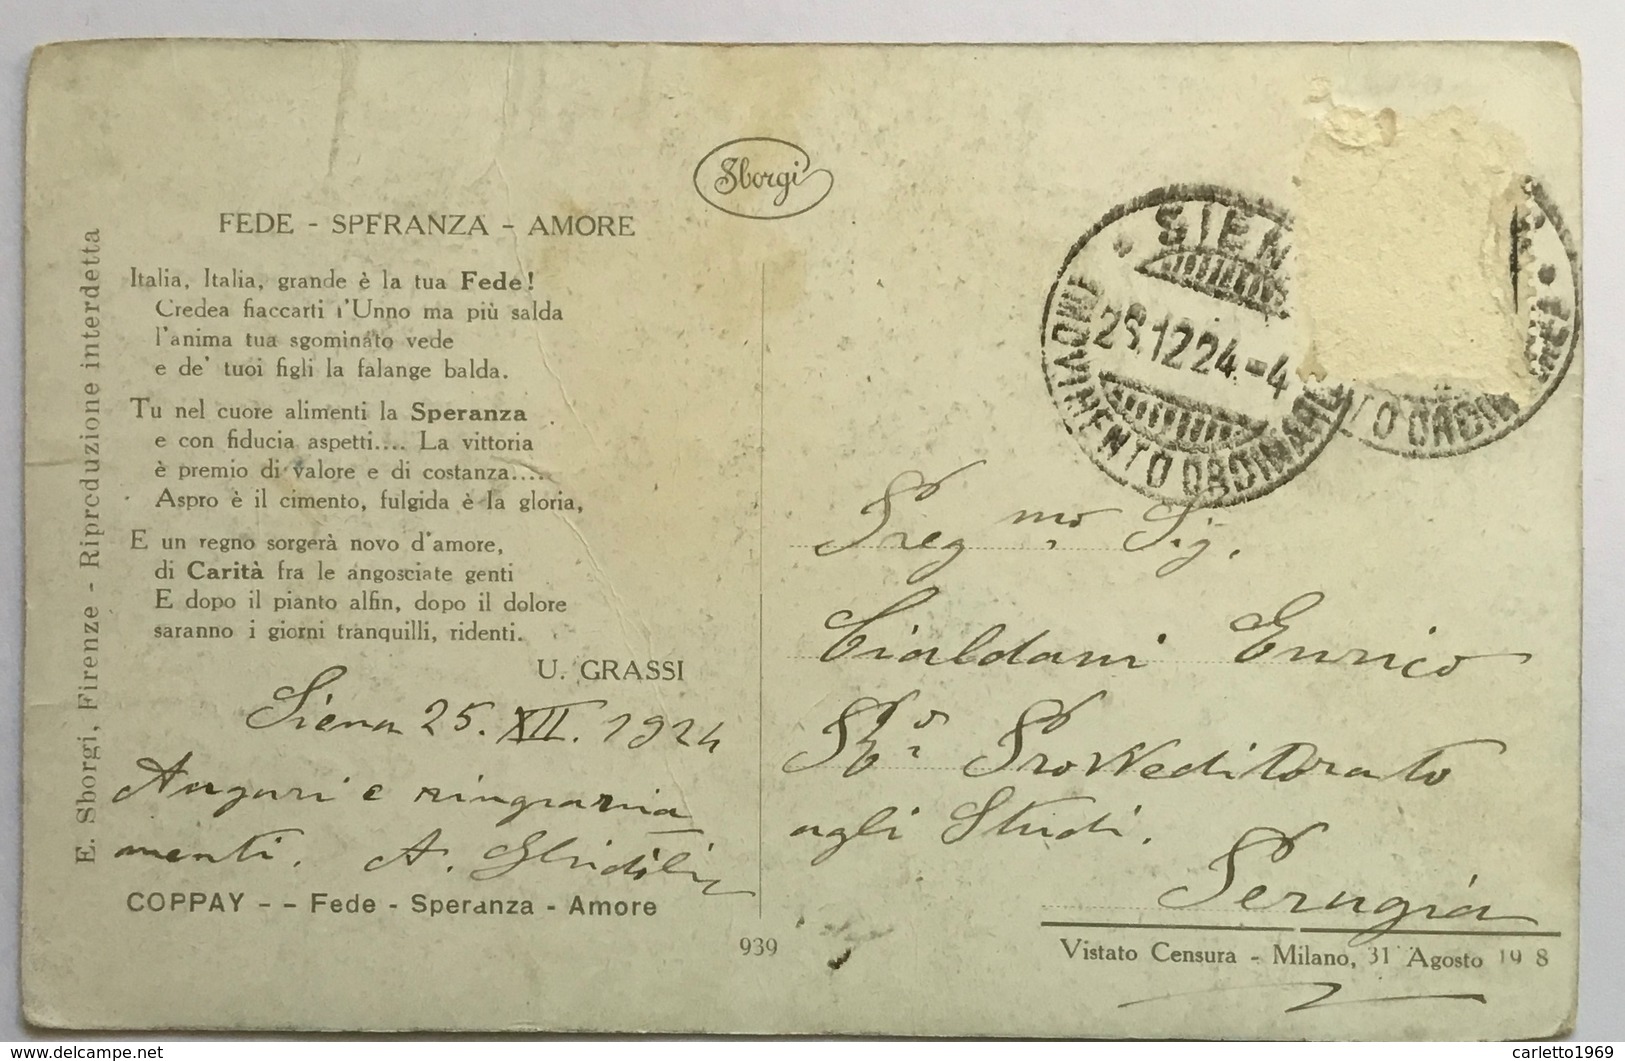 Sborgi
FEDE - SPERANZA - AMORE
Italia, Italia, grande è la tua Fede!
Credea fiaccarti l'Unno ma più salda
l'anima tua sgominato vede
e de' tuoi figli la falange balda.
Tu nel cuore alimenti la Speranza
e con fiducia aspetti.... La vittoria
è premio di valore e di costanza....
Aspro è il cimento, fulgida è la gloria,
E un regno sorgerà novo d'amore,
di Carità fra le angosciate genti
E dopo il pianto alfin, dopo il dolore
saranno i giorni tranquilli, ridenti.
U. GRASSI
Siena 25. XII. 1924
Auguri e ringrazia
menti. A.
COPPAY - - Fede - Speranza - Amore
E. Sborgi, Firenze - Riproduzione interdetta
939
SIEN
28.12 24.-4
MOVIMENTO ORDINARIE
TO ORDIN
Preg mo Sig.
Cialdani Enrico
Provveditorato
agli Studi.
Perugia
Vistato Censura - Milano, 31 Agosto 19 8
delcampe.net
carletto1969